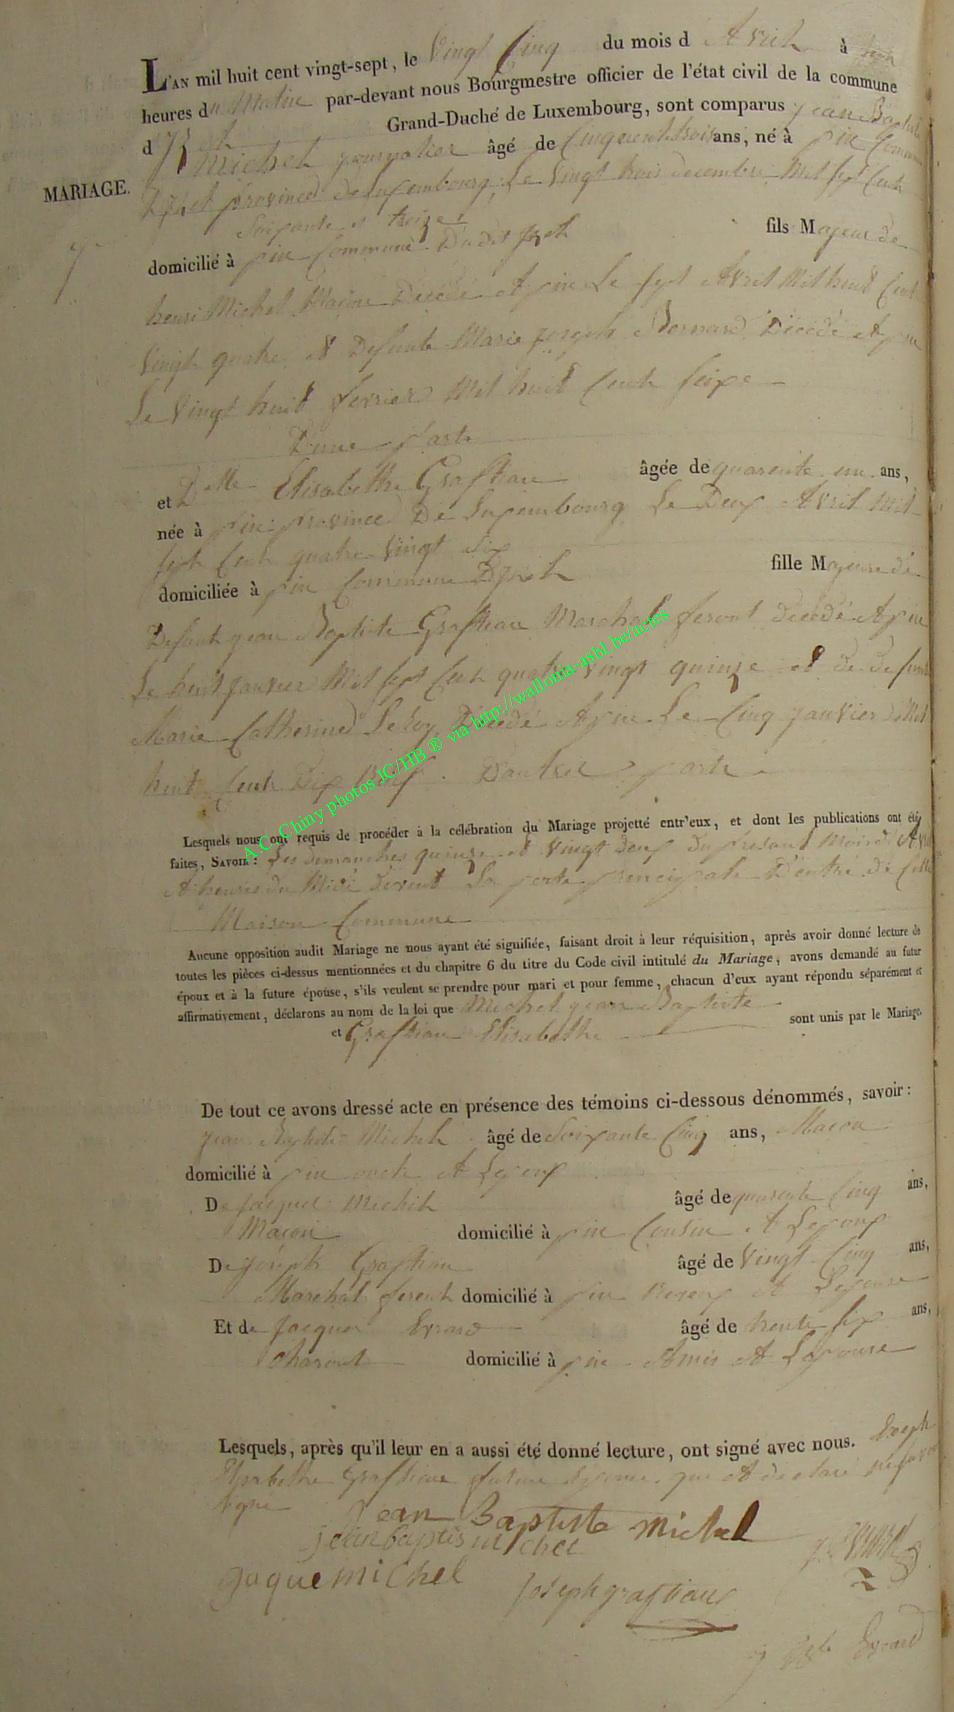 L'AN mil huit cent vingt-sept, le Vingt Cinq du mois d Avril à
heures du Matin par-devant nous Bourgmestre officier de l'état civil de la commune
d' Grand-Duché de Luxembourg, sont comparus jean Baptiste
Michel journalier âgé de Cinquent trois ans, né à pin Commune
MARIAGE.
Province de Luxembourg Le Vingt trois decembre Mil sept Cent
Soixante et treize
domicilié à pin Commune Dudit fils Majeur de
henri Michel Maçon Décédé A pin Le sept Avril Mil huit Cent
Vingt quatre et Defunte Marie joseph Bernard Décédé A pin
Le Vingt huit fevrier Mil huit Cent seize
D'une part
et Dlle Elisabethe Graftiau âgée de quarente un ans,
née à pin province De Luxembourg Le Deux Avril Mil
sept Cent quatre Vingt Six
domiciliée à pin Commune fille Majeure de
Defunt jean Baptiste Graftiau Marchal feront décédé A pin
Le huit janvier Mil sept Cent quatre Vingt quinze et de defunte
Marie Catherine Leroy Décédé A pin Le Cinq janvier Mil
huit Cent Dix D'autre part
A.C. Chiny photos JC/HB ® via http://wallonia-asbl.be/actes
Lesquels nous ont requis de procéder à la célébration du Mariage projetté entr'eux, et dont les publications ont été
faites, SAVOIR : Les demanches quinze et Vingt Deux Du présent Mois d'Avril
A heures du Midi Devent La porte prencipale D'entré De Cette
Maison Commune
Aucune opposition audit Mariage ne nous ayant été signifiée, faisant droit à leur réquisition, après avoir donné lecture de
toutes les pièces ci-dessus mentionnées et du chapitre 6 du titre du Code civil intitulé du Mariage, avons demandé au futur
époux et à la future épouse, s'ils veulent se prendre pour mari et pour femme, chacun d'eux ayant répondu séparément et
affirmativement, déclarons au nom de la loi que Michel jean Baptiste
et Graftiau Elisabethe sont unis par le Mariage.
De tout ce avons dressé acte en présence des témoins ci-dessous dénommés, savoir :
jean Baptiste Michel âgé de Soixante Cinq ans, Macon
domicilié à pin A Lepoux
De jacques Michel âgé de quarente Cinq ans,
Macon domicilié à pin Cousin A Lepoux
De joseph Graftiau âgé de Vingt Cinq ans,
Marchal ferent domicilié à pin A Lepouse
Et de jacques Evrard âgé de trente six ans,
domicilié à pin Amis A Lepouse
Lesquels, après qu'il leur en a aussi été donné lecture, ont signé avec nous.
Elisabethe Graftiau future Epouse qui at declaré
signé
jean Baptiste michel
jean baptis michel
jaque michel
joseph graftiaux
Evrard